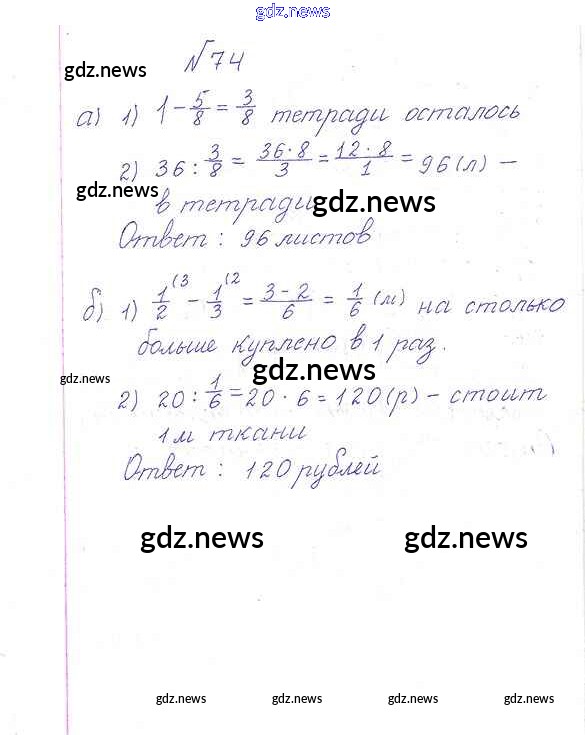 gdz.news
№74
gdz.news
а) 1) 1 - 5/8 = 3/8 тетради осталось
2) 36 : 3/8 = 36·8/3 = 12·8/1 = 96 (л) -
gdz.news
в тетради
gdz.news
Ответ : 96 листов
б) 1) 1/2 (3 - 1/3 (2 = 3-2/6 = 1/6 (м) на столько
больше куплено в 1 раз.
gdz.news
gdz.news
2) 20 : 1/6 = 20 · 6 = 120 (р) - стоит
1 м ткани
Ответ : 120 рублей
gdz.news gdz.news
gdz.news gdz.news gdz.news gdz.news